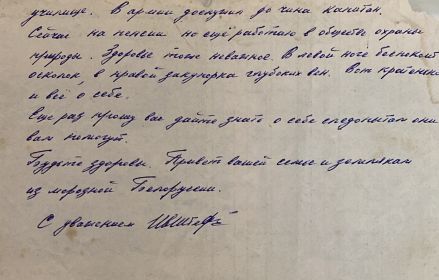 училище. В армии дослужил до чина капитан.
Сейчас на пенсии но ещё работаю в обществе охраны
природы. Здоровье тоже неважное. В левой ноге беспокоит
осколок, в правой закупорка глубоких вен. Вот
и всё о себе.
Еще раз прошу вас дайте знать о себе следопытам они
вам помогут.
Будьте здоровы. Привет вашей семье и землякам
из Белоруссии.
С уважением